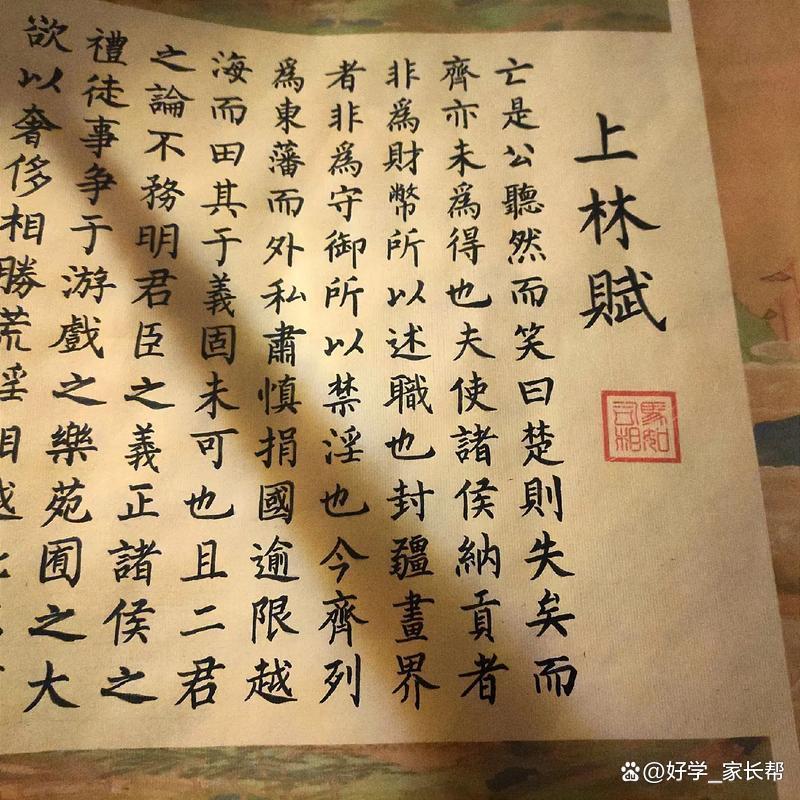 上林賦
司馬相如
亡是公聽然而笑曰楚則失矣而
齊亦未為得也夫使諸侯納貢者
非為財幣所以述職也封疆畫界
者非為守御所以禁淫也今齊列
為東藩而外私肅慎捐國逾限越
海而田其于義固未可也且二君
之論不務明君臣之義正諸侯之
禮徒事爭于游戲之樂苑囿之大
欲以奢侈相勝荒淫相越
@好学_家长帮